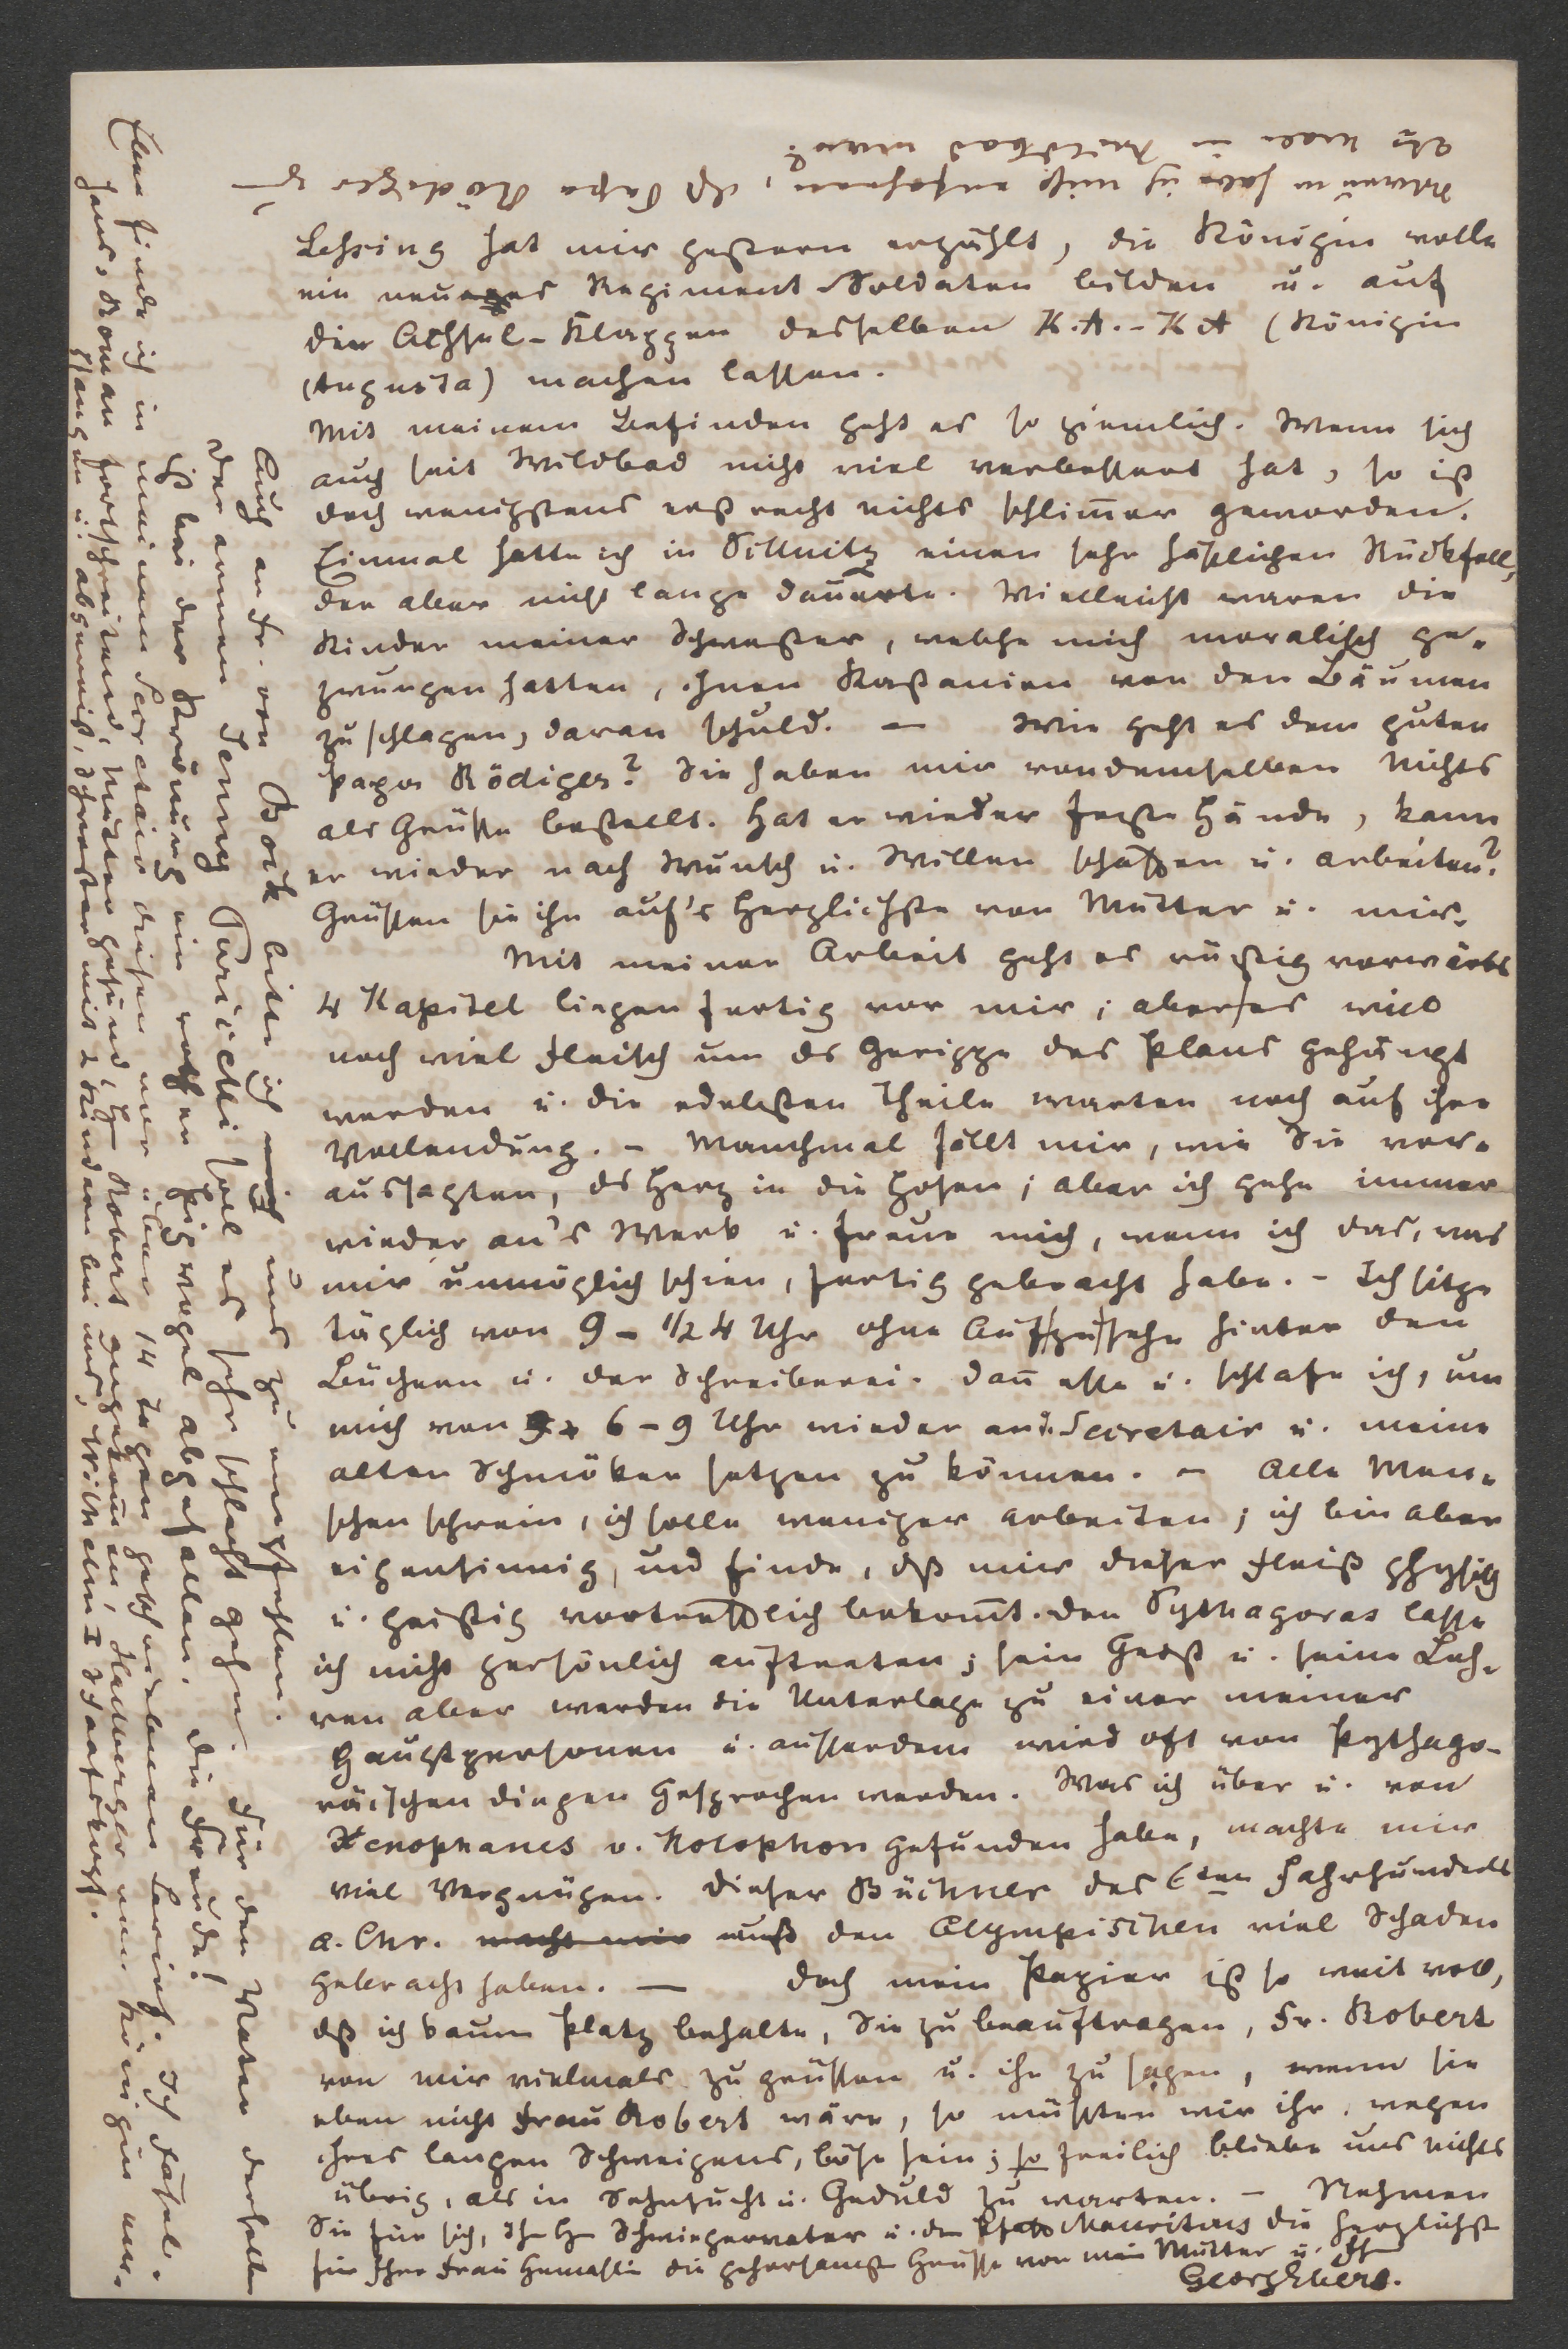 Lepsius hat mir gestern erzählt, die Königin wolle
ein neues Regiment Soldaten bilden u. auf
den Achsel-Klappen desselben K.A.-K A (Königin
(Augusta) machen lassen.
Mit meinem Befinden geht es so ziemlich. Wenn sich
auch seit Wildbad nicht viel verbessert hat, so ist
doch wenigstens erst recht nichts schlimmer geworden.
Einmal hatte ich in Pillnitz einen sehr häßlichen Rückfall,
der aber nicht lange dauerte. Vielleicht waren die
Kinder meiner Schwester, welche mich moralisch ge-
zwungen hatten, ihnen Kastanien von den Bäumen
zu schlagen, daran schuld. – Wie geht es dem guten
Papa Rödiger? Sie haben mir von demselben Nichts
als Grüße bestellt. Hat er wieder feste Hände, kann
er wieder nach Wunsch u. Willen schaffen u. arbeiten?
Grüßen sie ihn auf's Herzlichste von Mutter u. mir.
Mit meiner Arbeit geht es rüstig vorwärts
4 Kapitel liegen fertig vor mir; aber es will
noch viel Fleisch um ds Gerippe des Plans gehängt
werden u. die edelsten Theile warten noch auf ihre
Vollendung. – Manchmal fällt mir, wie Sie vor-
aussagten, ds Herz in die Hosen; aber ich gehe immer
wieder an's Werk u. freue mich, wenn ich das, was
mir unmöglich schien, fertig gebracht habe. – Ich sitze
täglich von 9 – 1/2 4 Uhr ohne Aufzusehn hinter den
Büchern u. der Schreiberei. Dann esse u. schlafe ich, um
mich von 6 – 9 Uhr wieder an d. Secretair u. meine
alten Schmöker setzen zu können. – Alle Men-
schen schrein, ich solle weniger arbeiten; ich bin aber
eigensinnig, und finde, dß mir dieser Fleiß physisch
u. geistig vortrefflich bekommt. Den Pythagoras lasse
ich nicht persönlich auftreten; sein Geist u. seine Leh-
ren aber werden die Unterlage zu einer meiner
Hauptpersonen u. ausserdem wird oft von Pythago-
räischen dingen Gesprochen werden. Was ich über u. von
Xenophanes v. Kolophon gefunden habe, machte mir
viel Vergnügen. Dieser Büchner des 6ten Jahrhunderts
a. Chr. macht mir muß den Olympischen viel Schaden
gebracht haben. — Doch mein Papier ist so weit voll,
dß ich kaum Platz behalte, Sie zu beauftragen, Fr. Robert
von mir vielmals zu grüßen u. ihr zu sagen, wenn sie
eben nicht Frau Robert wäre, so müßten wir ihr, wegen
ihres langen Schweigens, böse sein; so freilich bliebe uns nichts
übrig, als in Sehnsucht u. Geduld zu warten. – Nehmen
Sie für sich, Ihr H Schwiegervater u. den Mauritius die herzlichst
für Ihre Frau Gemahlin die gehorsamst Grüße von mein Mutter u. Ihr
Georg Ebers.
Auch an Fr. von Bock bitte ich uns zu empfehlen.
Der armen Jenny soll es sehr schlecht gehen. Für den Vater derselben
ist bei der Krönung ein rother Piepvogel abgefallen. Die Freude!
Eben finde ich in meinem Secretair diesen nun über 14 Tagen geschriebenen Brief. Ich
Haus, Roman fortschreitend, Mutter gesund, H Robert angekommen, von Königin
u. abgereist, Schwester mit 2 Kindern bei uns, Wilhelm I
Warum habe ich nicht erfahren, daß Papa Rödiger
in Wildbad war?